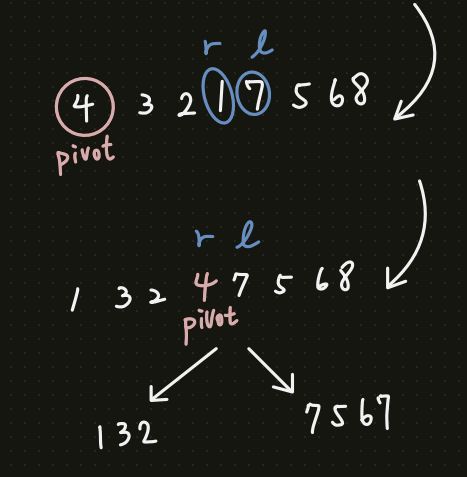 r l
4 3 2 1 7 5 6 8
pivot
r l
1 3 2 4 7 5 6 8
pivot
1 3 2
7 5 6 7